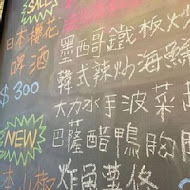 SALE
日本櫻花
啤酒
$300
NEW
墨西哥鐵板
韓式辣炒海鮮
大力水手波菜
巴薩醋鴨胸
炸魚薯條